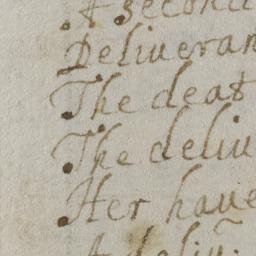 A second
Deliveran
The deat
The deliu
Her haue
A deliu̅.